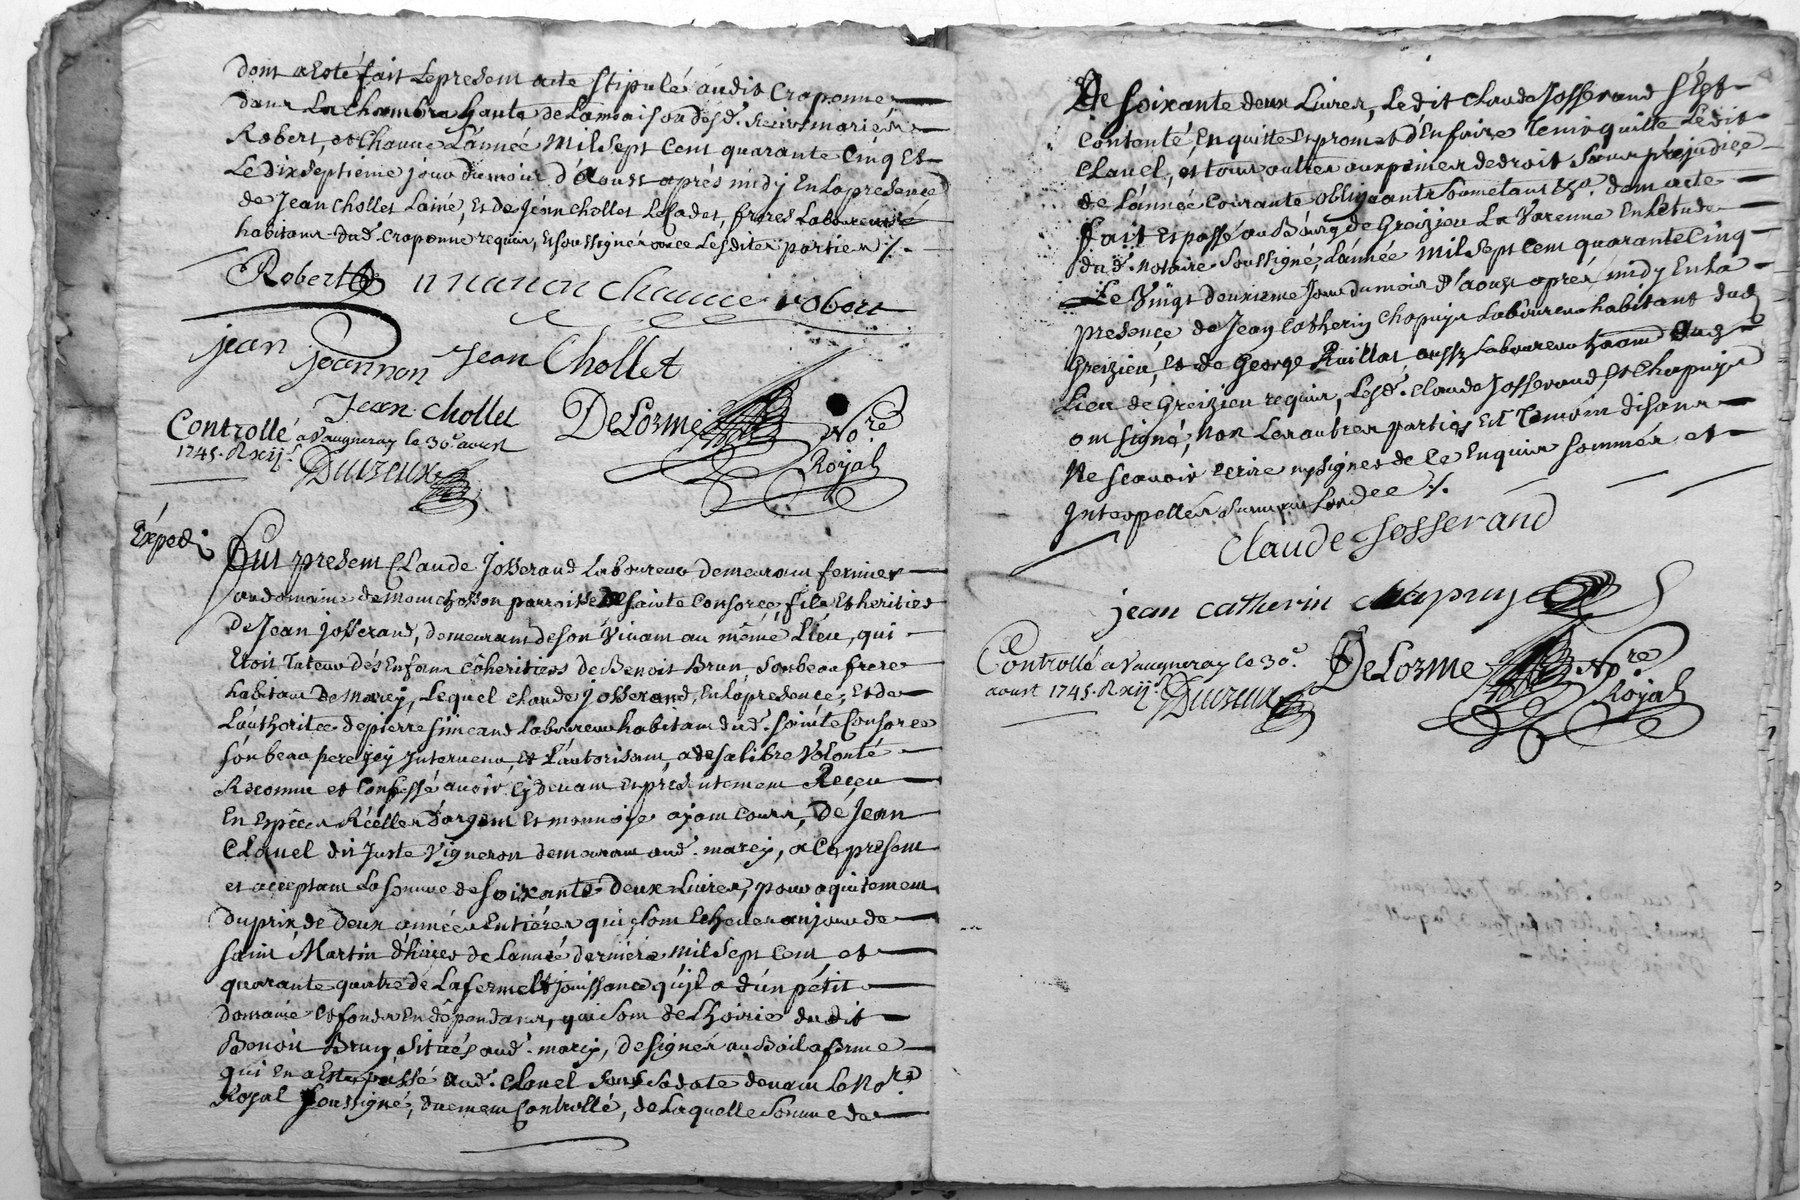 dont a Esté fait Lepresent acte stipulé audit Craponne
dans La Chambre haute de Lamaison desd. Sieurs mariés
Robert, et Chauve L'année Mil Sept Cent quarante Cinq Et
Le dix Septieme jour dumois d'Aoust après midy En Lapresence
de Jean Chollet Lainé, Et de Jean Chollet Le Cadet, freres Laboureurs
habitans dud. Craponne requis, Et soussignés avec Lesdites parties /.
Robert manon Chauve robert
jean joannon Jean Chollet
Jean Chollet
DeLorme No.re Royal
Controllé a Vaugneray le 30e aoust
1745. R xij s.
Ducreux
Expedi
Fut present Claude Josserand Laboureur demeurant fermier
audomaine de Montchosson parroisse de Sainte Consorce, fils Et heritier
De Jean Josserand, demeurant de son Vivant au même Lieu, qui
Etoit Tuteur des Enfans Côheritiers de Benoit Brun, Son beau frere
habitant De Marcy, Lequel Claude Josserand, En Lapresence, Et de
L'authorité de pierre Simeand Laboureur habitant dud. Sainte Consorce
Son beau pere jcy Intervenu, Et L'autorisant, a de sa libre Volonté
Reconnu et Confessé avoir Cy devant Et presentement Reçeu
En Especes Réelles D'argent Et monnoye ayant Cours, De Jean
Clavel dit Juste Vigneron demeurant aud. marcy, a Ce present
et acceptant La Somme de Soixante deux Livres, pour aquitement
Du prix de Deux années Entières qui Sont Echeues au jour de
Saint Martin d'hiver de Lannée dernière Mil Sept Cent et
quarante quatre de La ferme Et jouissance qu'il a d'un pétit
Domaine Et fonds En dépendans, qui Sont de L'hoirie dudit
Benoit Brun, Situés aud. marcy, Designés au Bail a ferme
qui En a Esté passé aud. Clavel Sous Sa date devant Le No.re
Royal Soussigné, duement Controllé, de Laquelle Somme de
De Soixante deux Livres, Ledit Claude Josserand S'Est
Contenté, En quitte Et promet d'En faire Tenir quitte Ledit
Clavel, et tous autres aux peines de droit Sans préjudice
de L'année Courante obligeants Soumetans &a. dont acte
fait Et passé au Bourg de Greizieu La Varenne En L'étude
dud. notaire Soussigné, L'année Mil Sept Cent quarante Cinq
Le Vingt deuxieme Jour dumois D'aoust après midy En La
presence de Jean Catherin Chapuys Laboureur habitant dud.
Greizieu, Et de George Ruillat aussy Laboureur dud.
Lieu de Greizieu requis, Lesd. Claude Josserand Et Chapuys
ont Signé, Non Les autres parties Et Temoin disans
Ne Scavoir Ecrire ny Signer de Ce Enquis Sommés et
Interpellés Suivant Lordce /.
Claude Josserand
jean catherin chapuys
DeLorme No.re Royal
Controllé a Vaugneray le 30e.
aoust 1745. R xij s.
Ducreux